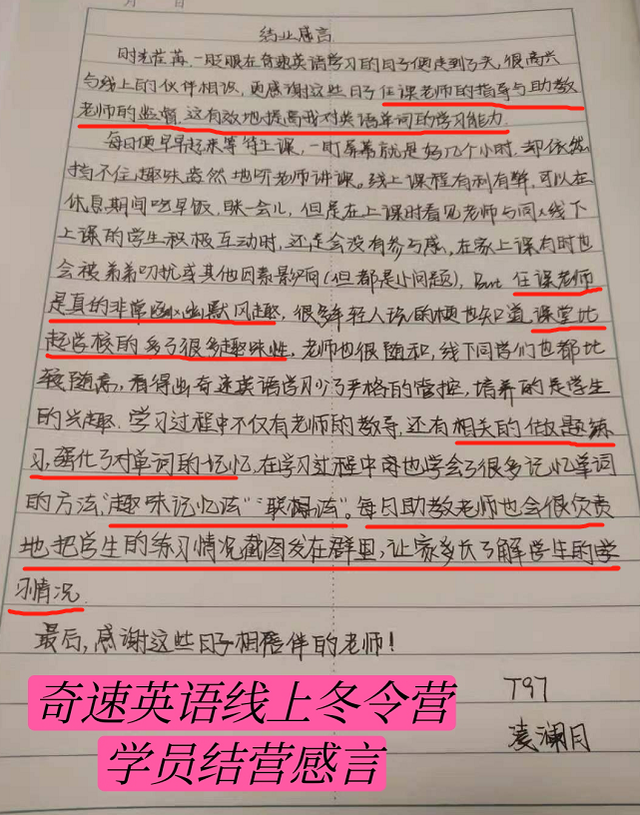 月 日
结业感言
时光荏苒,一眨眼在奇速英语学习的日子便走到了头,很高兴
与线上的伙伴相识,更感谢这些日子任课老师的指导与助教
老师的监督,这有效地提高我对英语单词的学习能力.
每日便早早起来等待上课,一盯屏幕就是好几个小时.却依然
挡不住趣味盎然地听老师讲课。线上课程有利有弊,可以在
休息期间吃早饭,眯一会儿,但是在上课时看见老师与同线下
上课的学生积极互动时,还是会没有参与感,在家上课有时也
会被弟弟叨扰或其他因素影响(但都是小问题),But 任课老师
是真的非常幽默风趣,很多年轻人该的梗也知道,课堂比
起学校的多了很多趣味性,老师也很随和,线下同学们也都比
较随意,看得出奇速英语学习少了严格的管控,培养的是学生
的兴趣.学习过程中不仅有老师的教导,还有相关的做题练
习,强化了对单词的记忆,在学习过程中也学会了很多记忆单词
的方法“趣味记忆法”“联想法”。每日助教老师也会很负责
地把学生的练习情况截图发在群里,让家长了解学生的学
习情况.
最后,感谢这些日子相陪伴的老师!
T97
凌澜月
奇速英语线上冬令营
学员结营感言